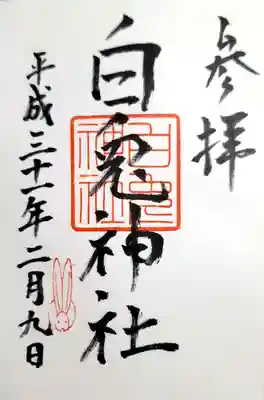 参拝
白兎神社
白兎神社
平成三十一年二月九日